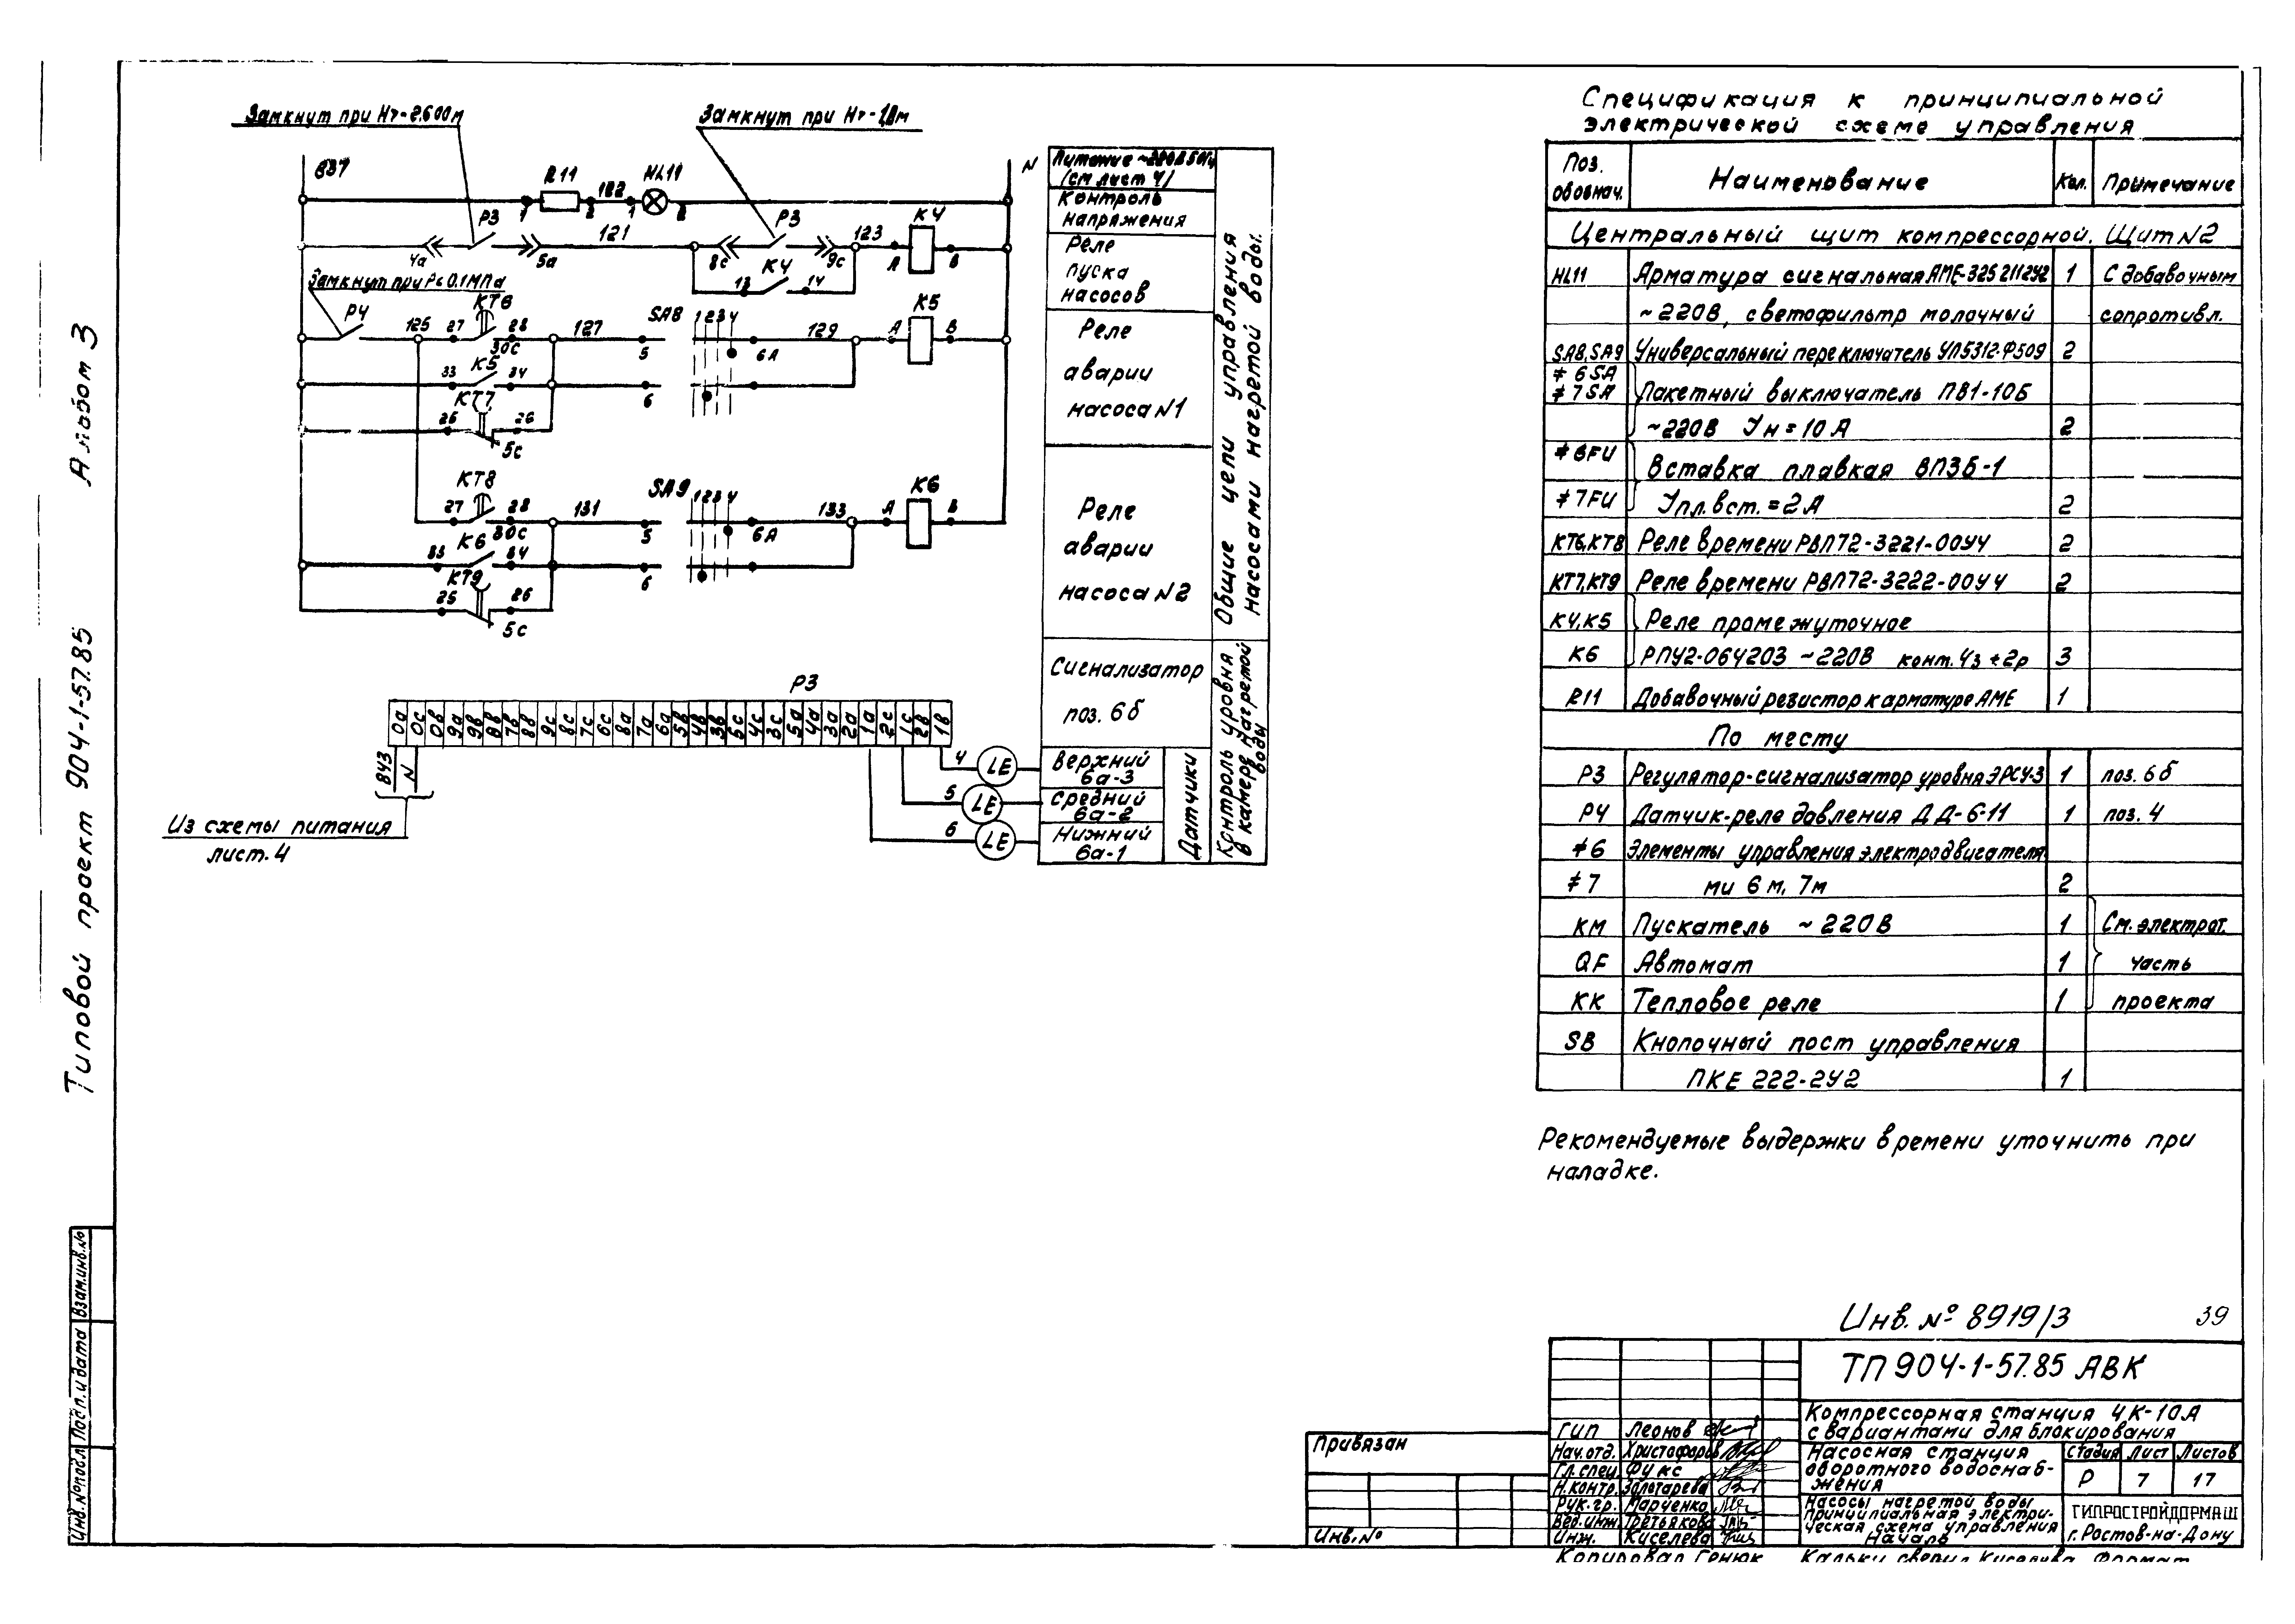 Типовой проект 904-1-57.85 Альбом 3
Замкнут при Нг-2.600м
Замкнут при Нг-1,8м
837
R11
HL11
N
1
2
122
1
2
Р3
Р3
121
123
К4
4а
5а
8с
9с
А
В
К4
13
14
Замкнут при Р≤0.1МПа
Р4
КТ6
125
27
28
30с
127
SA8
1 2 3 4
5
6А
129
А
К5
В
К5
33
34
6
КТ7
25
26
5с
КТ8
27
28
30с
131
SA9
1 2 3 4
5
6А
133
А
К6
В
К6
33
34
6
КТ9
25
26
5с
Питание ~220В 50Гц
(см лист 4)
Контроль
напряжения
Реле
пуска
насосов
Реле
аварии
насоса N1
Реле
аварии
насоса N2
Общие цепи управления
насосами нагретой воды.
Сигнализатор
поз. 6б
Контроль уровня
в камере нагретой
воды
Датчики
Верхний
6а-3
Средний
6а-2
Нижний
6а-1
Р3
0а 0с 0в 9а 9в 8в 7в 8в 9с 8с 7с 6с 8а 7а 6а 5в 4в 3в 5с 4с 3с 5а 4а 3а 2а 1а 2с 1с 2в 1в
843
N
4
LE
5
LE
6
LE
Из схемы питания
лист. 4
Спецификация к принципиальной
электрической схеме управления
Поз. обознач.
Наименование
Кол.
Примечание
Центральный щит компрессорной. Щит N2
HL11 Арматура сигнальная АМЕ-325211242 1 С добавочным
~220В, светофильтр молочный сопротивл.
SA8,SA9 Универсальный переключатель УП5312-Ф509 2
≠6SA
≠7SA Пакетный выключатель ПВ1-10Б
~220В Iн=10А 2
≠6FU Вставка плавкая ВПЗБ-1
≠7FU Iпл.вст.=2А 2
КТ6,КТ8 Реле времени РВП72-3221-00У4 2
КТ7,КТ9 Реле времени РВП72-3222-00У4 2
К4,К5 Реле промежуточное
К6 РПУ2-064203 ~220В конт. 4з+2р 3
R11 Добавочный резистор к арматуре АМЕ 1
По месту
Р3 Регулятор-сигнализатор уровня ЭРСУ-3 1 поз. 6б
Р4 Датчик-реле давления ДД-6-11 1 поз. 4
≠6 Элементы управления электродвигателя-
≠7 ми 6м, 7м 2
КМ Пускатель ~220В 1 См. электрот.
QF Автомат 1 часть
КК Тепловое реле 1 проекта
SB Кнопочный пост управления
ПКЕ 222-2У2 1
Рекомендуемые выдержки времени уточнить при
наладке.
Инв. № 8919/3
39
ТП 904-1-57.85 АВК
Компрессорная станция 4К-10А
с вариантами для блокирования
Насосная станция
оборотного водоснаб-
жения
Стадия Лист Листов
Р 7 17
Насосы нагретой воды
Принципиальная электри-
ческая схема управления
Начало
ГИПРОСТРОЙДОРМАШ
г. Ростов-на-Дону
ГИП Леонов
Нач.отд. Христофоров
Гл.спец. Фукс
Н.контр. Золотарева
Рук.гр. Марченко
Вед.инж. Третьякова
Инж. Киселева
Привязан
Инв.№
Инв.№подл. Подп. и дата Взам.инв.№
Копировал Генюк Кальку сверил Киселева Формат